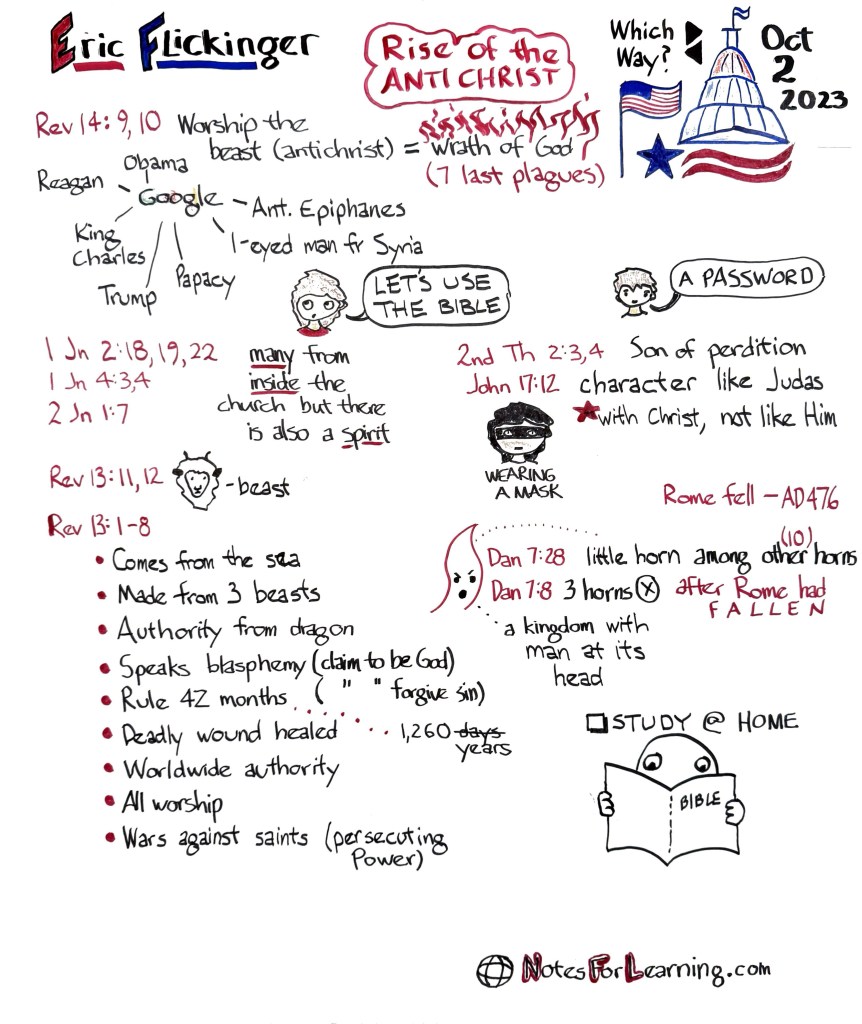 Eric Flickinger
Rise of the
ANTI CHRIST
Which
Way?
Oct
2
2023
Rev 14:9,10 Worship the
beast (antichrist) = wrath of God
(7 last plagues)
Obama
Reagan
Google - Ant. Epiphanes
King
Charles
1-eyed man fr Syria
Papacy
Trump
LET'S USE
THE BIBLE
A PASSWORD
1 Jn 2:18,19,22 many from
1 Jn 4:3,4 inside the
2 Jn 1:7 church but there
is also a spirit
2nd Th 2:3,4 Son of perdition
John 17:12 character like Judas
with Christ, not like Him
WEARING
A MASK
Rev 13:11,12 - beast
Rome fell - AD476
Rev 13:1-8
• Comes from the sea
• Made from 3 beasts
• Authority from dragon
• Speaks blasphemy (claim to be God)
( " " forgive sin)
• Rule 42 months
• Deadly wound healed ... 1,260 days
years
• Worldwide authority
• All worship
• Wars against saints (persecuting
Power)
(10)
Dan 7:28 little horn among other horns
Dan 7:8 3 horns X after Rome had
FALLEN
a kingdom with
man at its
head
STUDY @ HOME
BIBLE
NotesForLearning.com